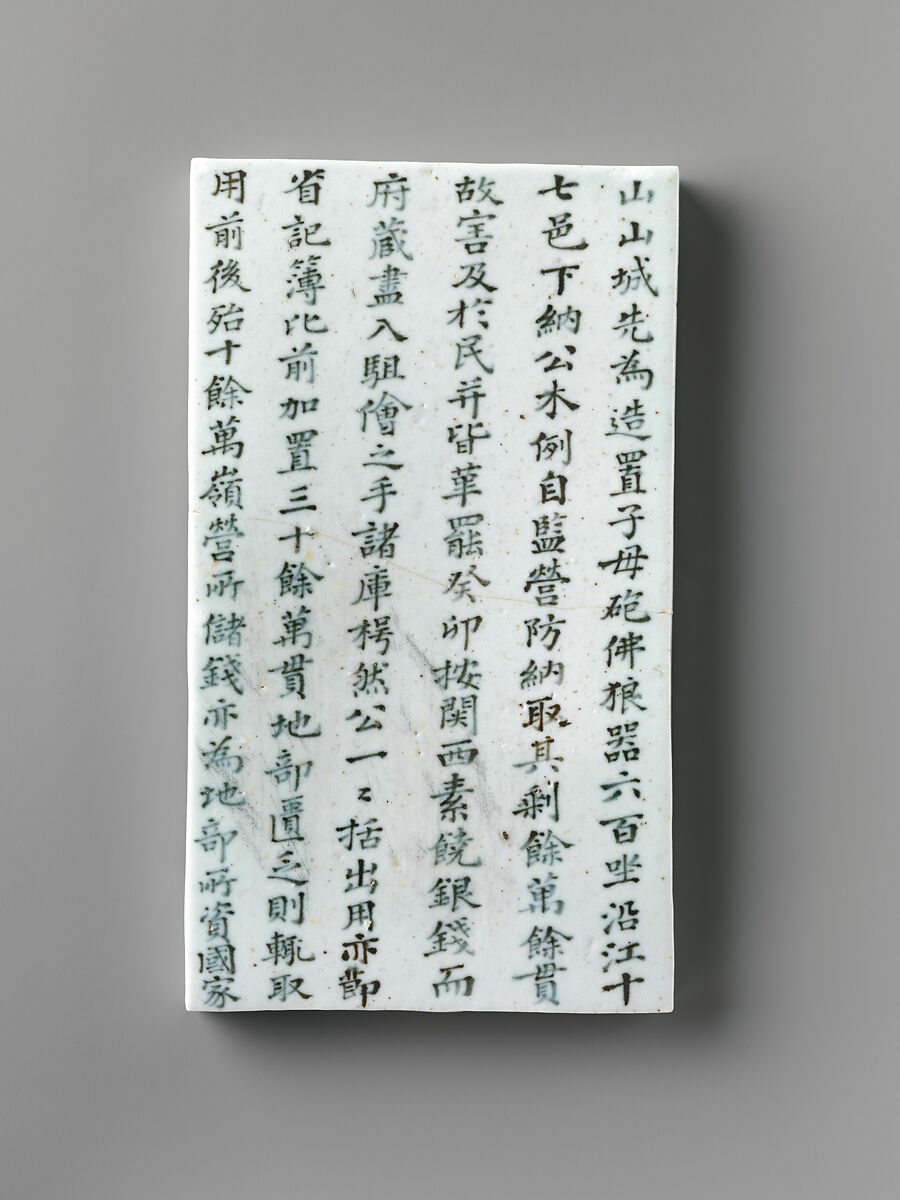 山山城先為造置子母砲佛狼器六百坐沿江十
七邑下納公木例自監營防納取其剩餘萬餘貫
故害及於民并皆革罷癸卯按関西素饒銀錢而
府蔵盡入駔儈之手諸庫枵然公一〻括出用亦節
省記簿比前加置三十餘萬貫地部匱乏則輒取
用前後殆十餘萬嶺營所儲錢亦為地部所資國家